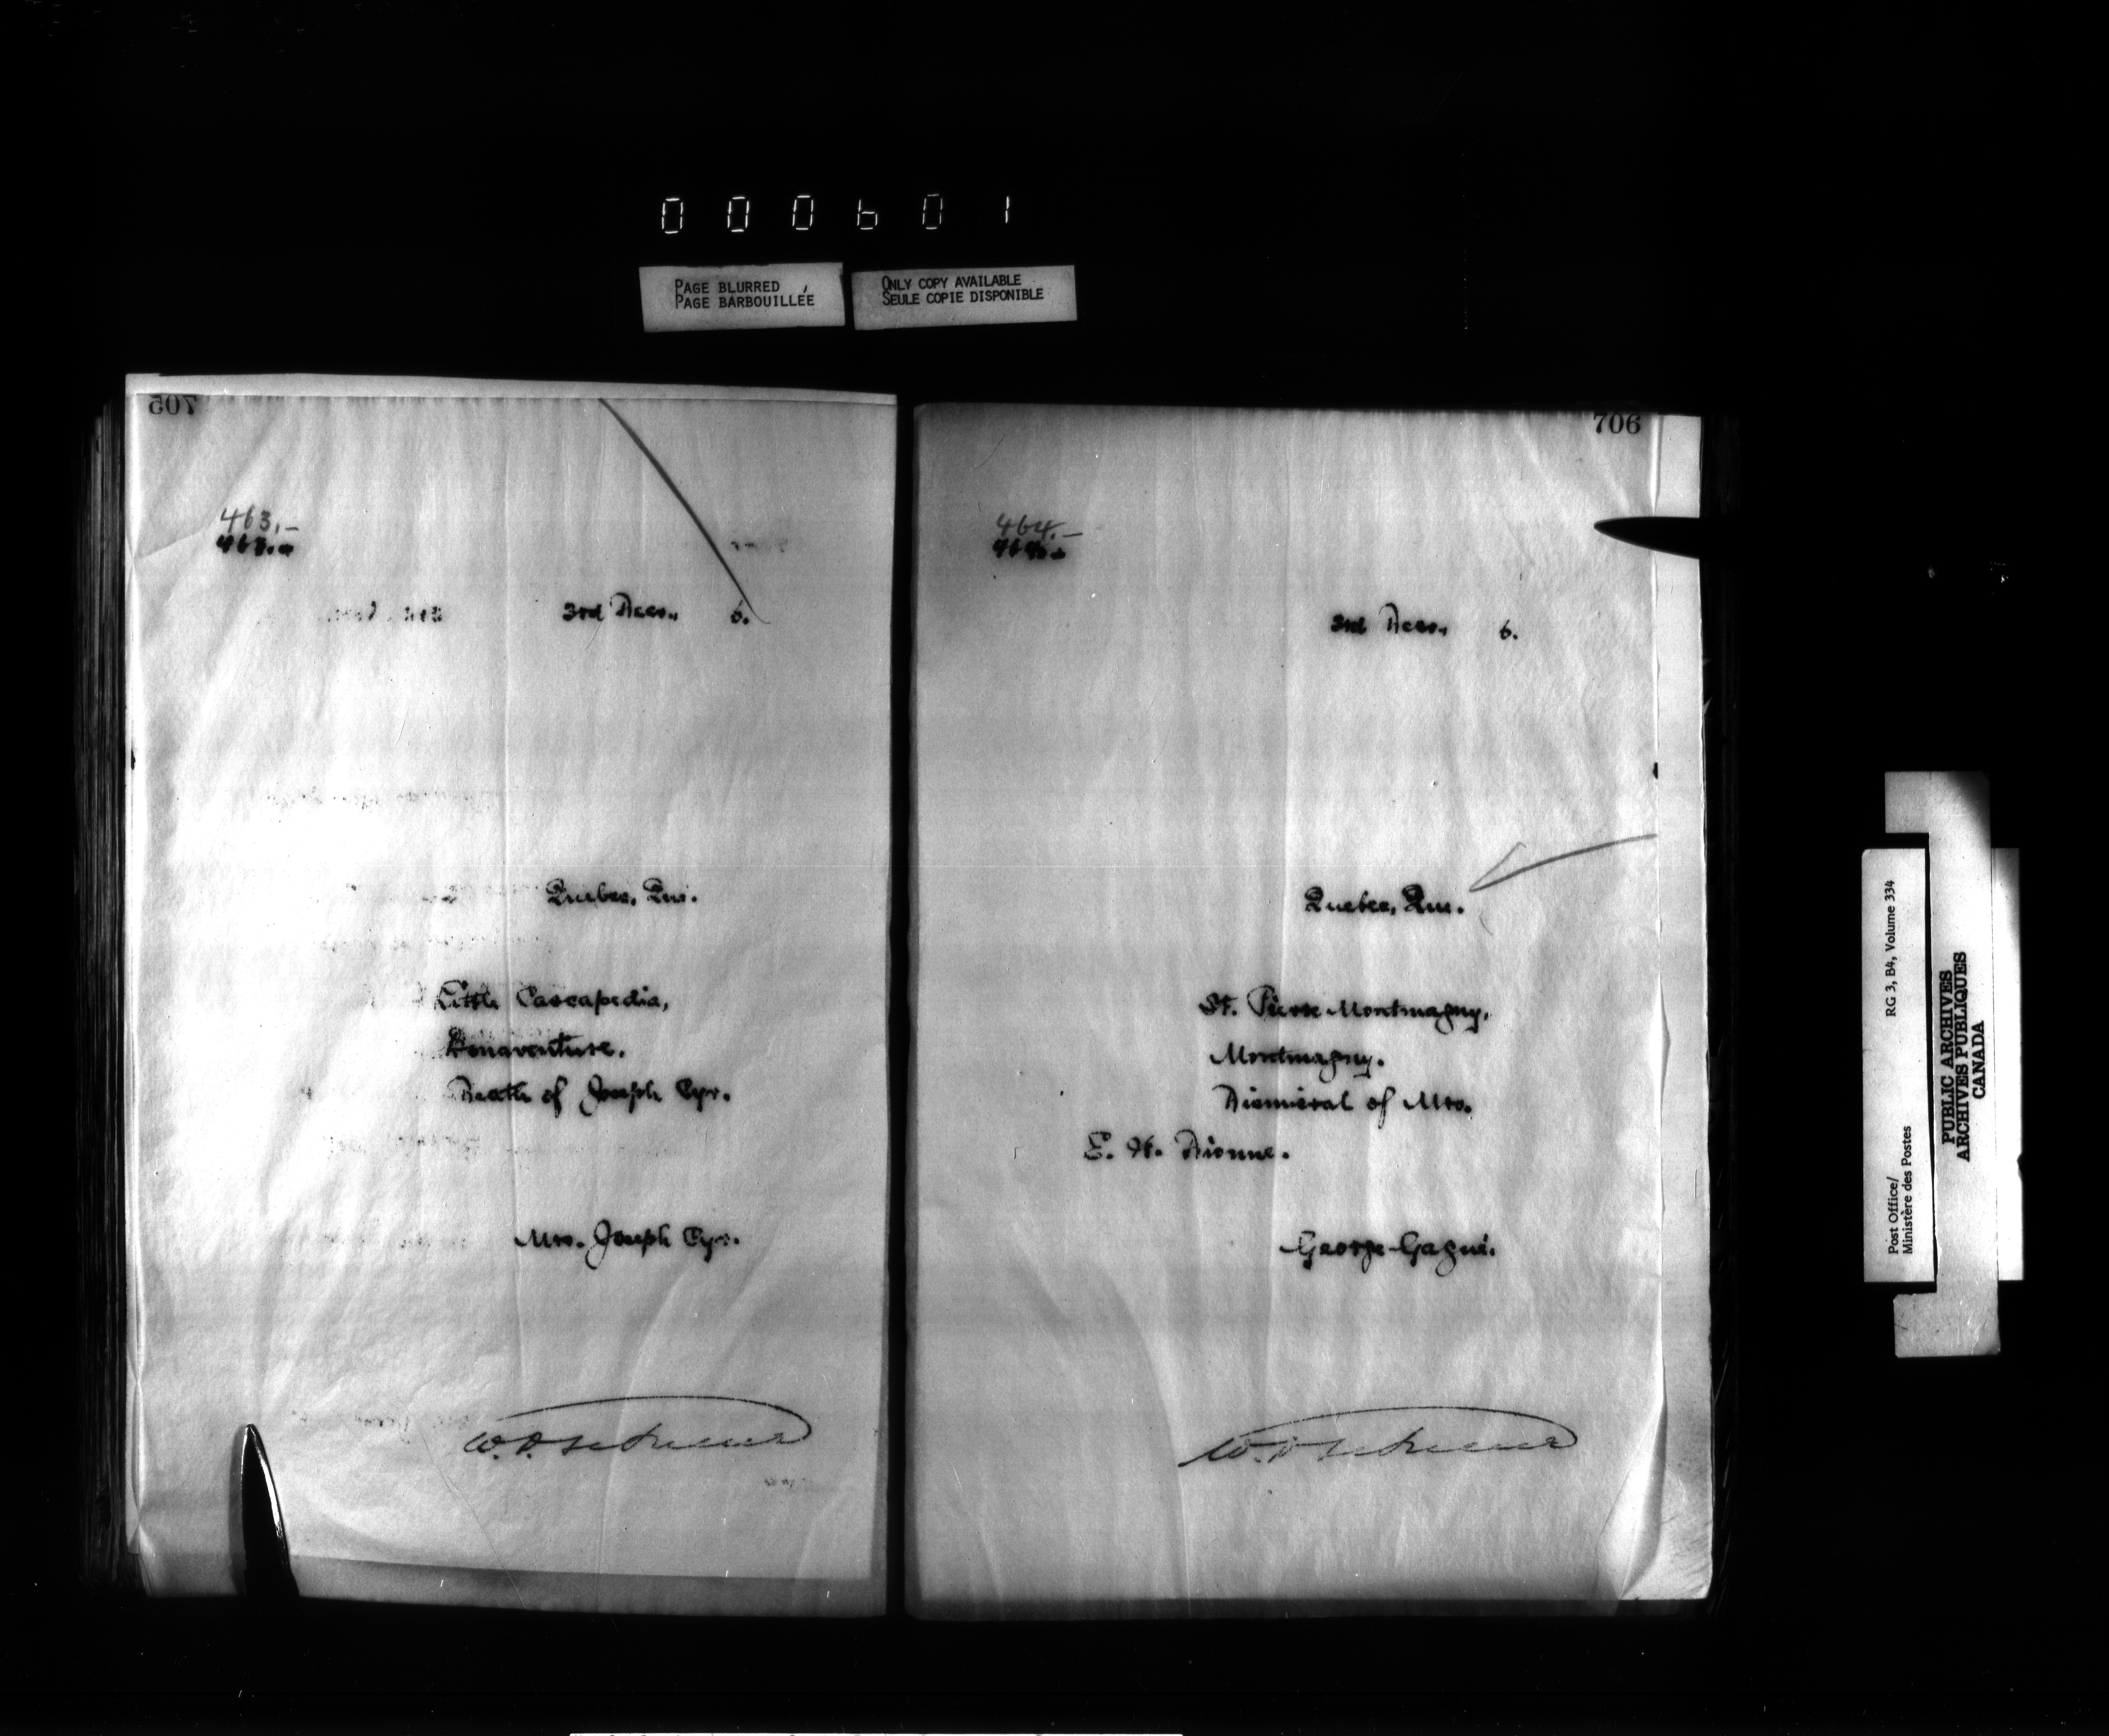 000601
PAGE BLURRED
PAGE BARBOUILLÉE
ONLY COPY AVAILABLE
SEULE COPIE DISPONIBLE
705
463.-
463.-
3rd Decr., 6.
Quebec, Que.
Little Cascapedia,
Bonaventure.
Death of Joseph Cyr.
Mrs. Joseph Cyr.
706
464.-
464.-
3rd Decr., 6.
Quebec, Que.
St. Pierre Montmagny,
Montmagny.
Dismissal of Mrs.
E. H. Dionne.
George Gagné.
Post Office/
Ministère des Postes
RG 3, B4, Volume 334
PUBLIC ARCHIVES
ARCHIVES PUBLIQUES
CANADA